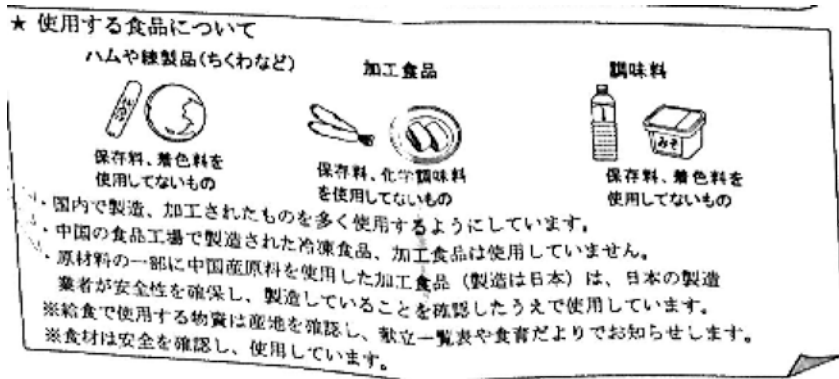 ★ 使用する食品について
ハムや練製品(ちくわなど)
加工食品
調味料
みそ
保存料、着色料を
使用してないもの
保存料、化学調味料
を使用してないもの
保存料、着色料を
使用してないもの
・国内で製造、加工されたものを多く使用するようにしています。
・中国の食品工場で製造された冷凍食品、加工食品は使用していません。
・原材料の一部に中国産原料を使用した加工食品(製造は日本)は、日本の製造
業者が安全性を確保し、製造していることを確認したうえで使用しています。
※給食で使用する物資は産地を確認し、献立一覧表や食育だよりでお知らせします。
※食材は安全を確認し、使用しています。